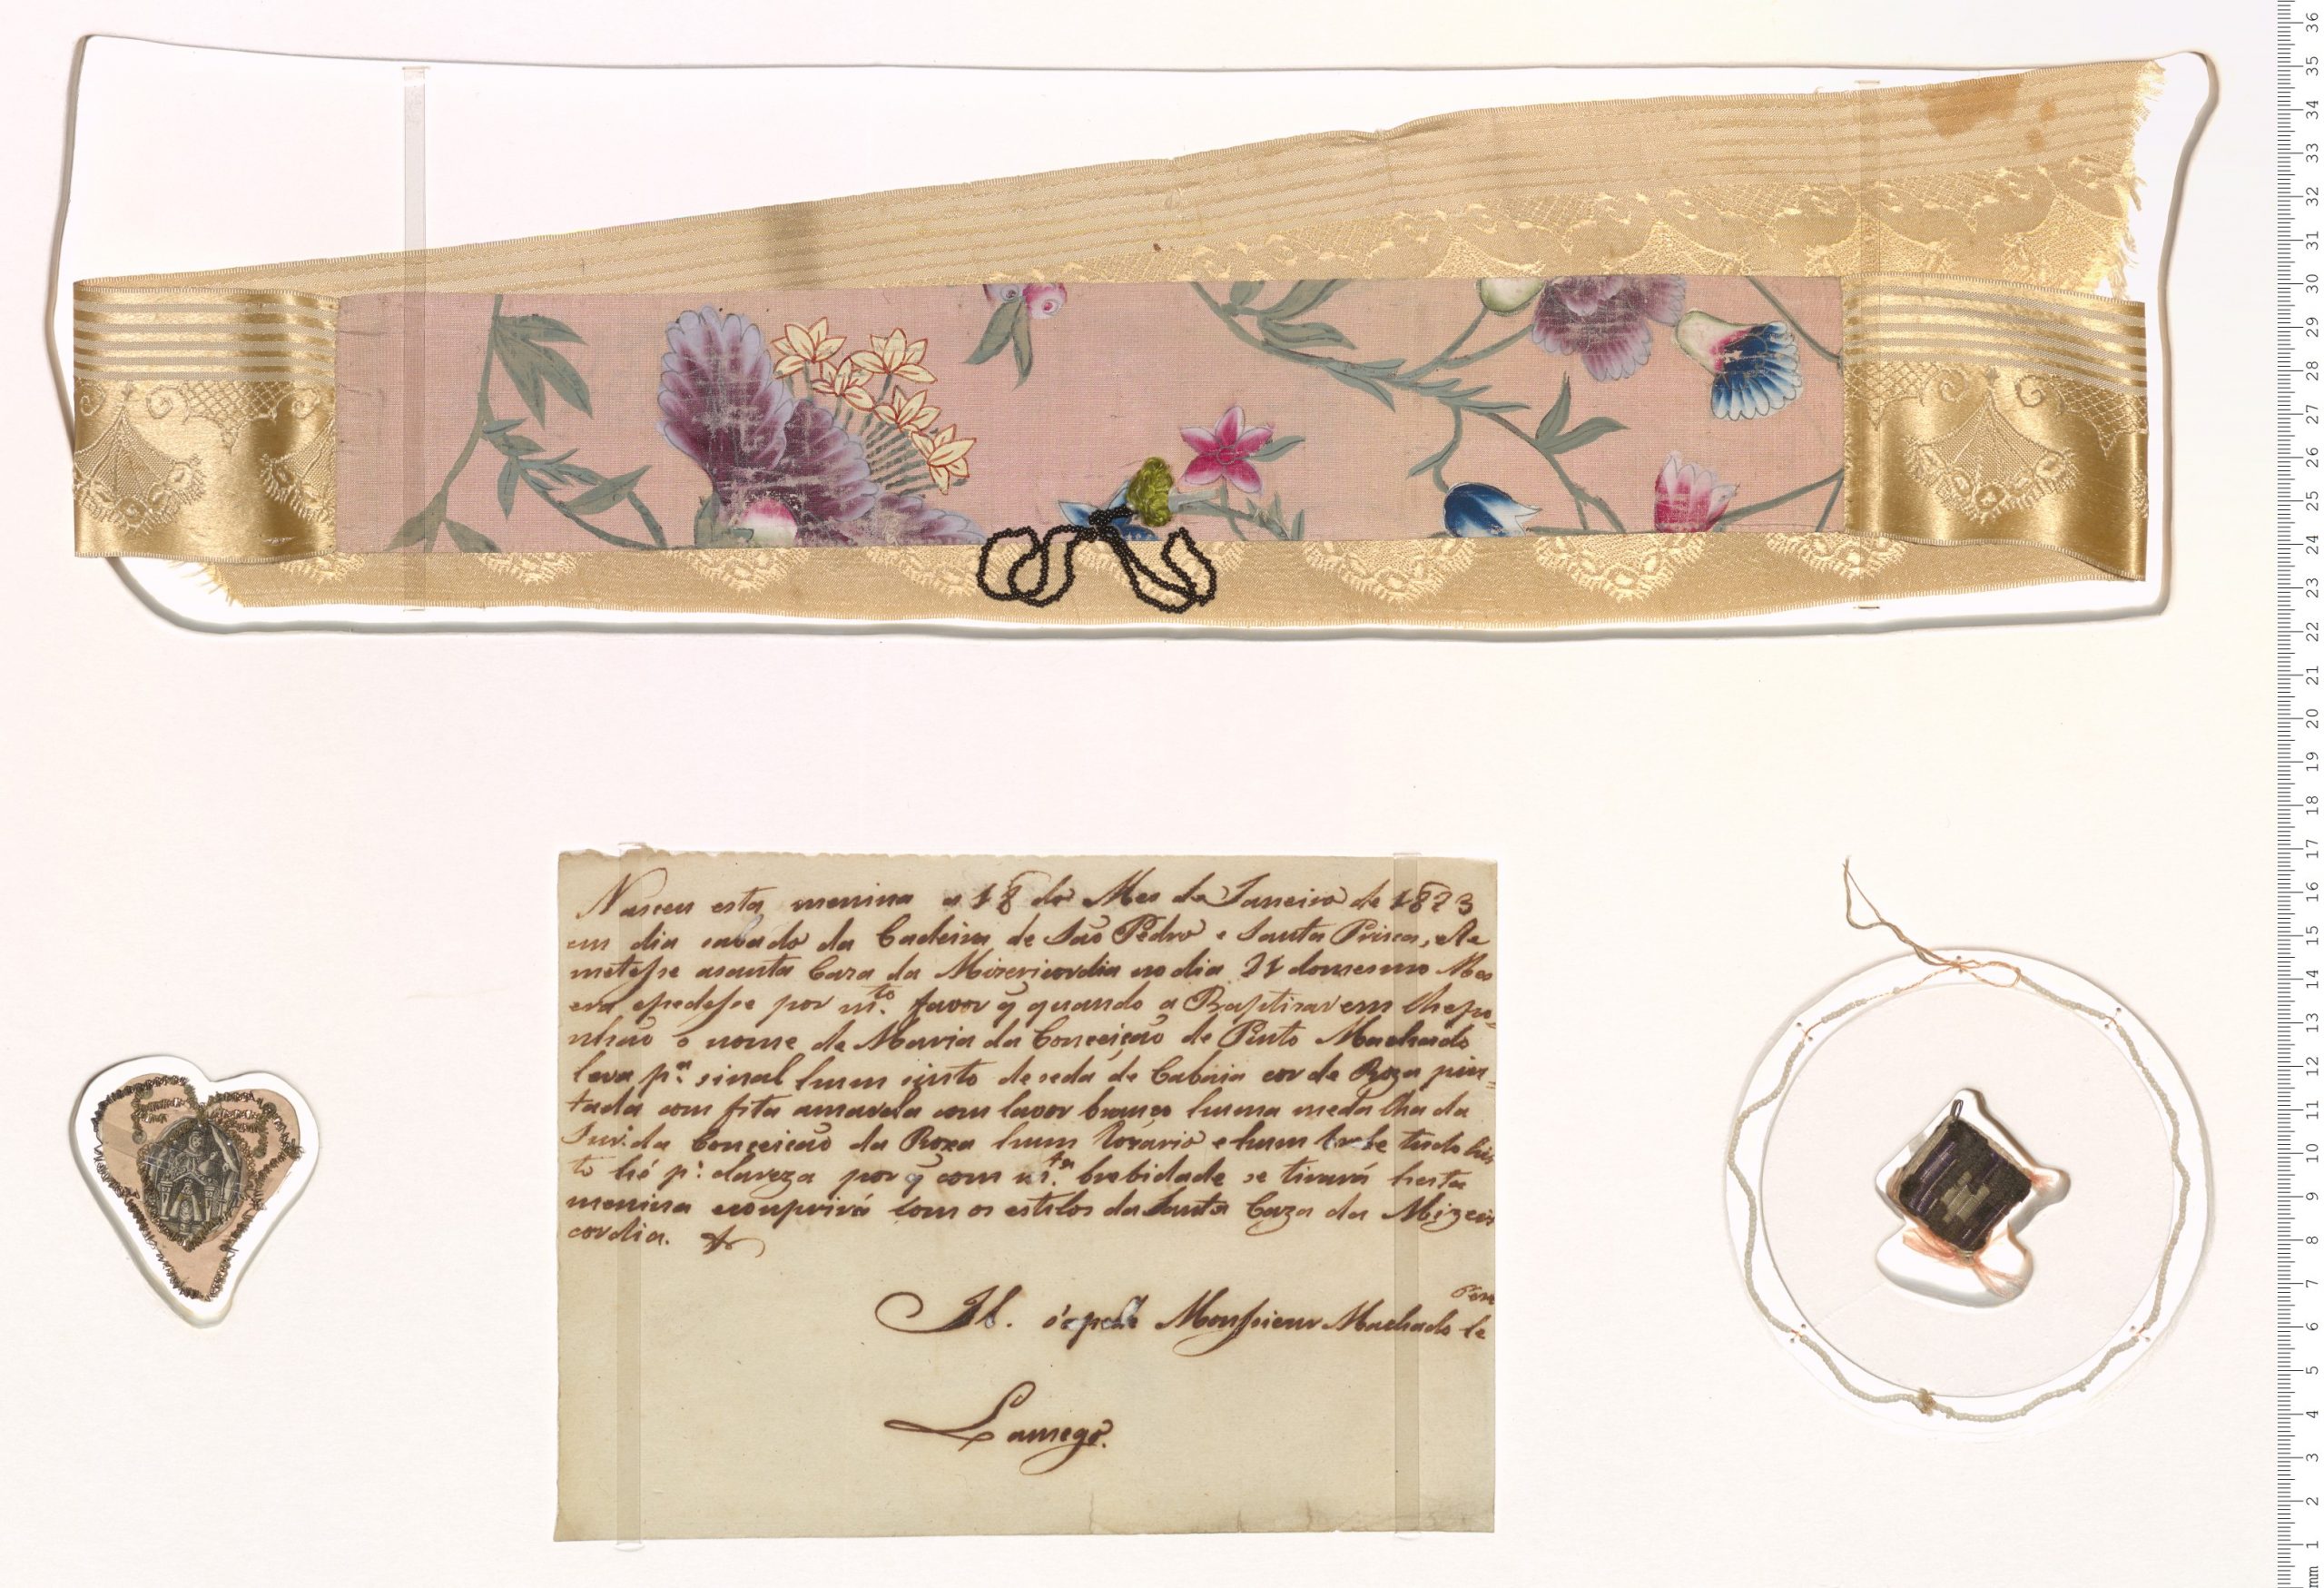 Nasceu esta menina a 18 do Mes de Janeiro de 1823
em dia sabado da Cadeira de São Pedro e Santa Prisca, eRe
meteſse asanta Caza da Mizericordia no dia 21 domesmo Mes
era epedeſse por m.to favor q̃ quando a Baptizarem lhepo-
nhão o nome de Maria da Conceição de Pinto Machado
leva p.a sinal hum sinto de seda de Cabaia cor de Roza pin-
tada com fita amarela com lavor branco huma medalha da
Snr.da Conceicão da Roxa hum Rozario e hum tudo his
to hé p.a clareza por q̃ com m.ta brebidade se tirará hesta
menina ecomprirá com os estilos da Santa Caza da Mizeri
cordia.
o'apede Monſieur Machado le
Lamego.
1 2 3 4 5 6 7 8 9 10 11 12 13 14 15 16 17 18 19 20 21 22 23 24 25 26 27 28 29 30 31 32 33 34 35 36
mm